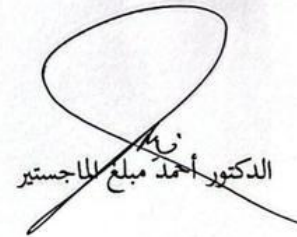 الدكتور أحمد مبلغ الماجستير